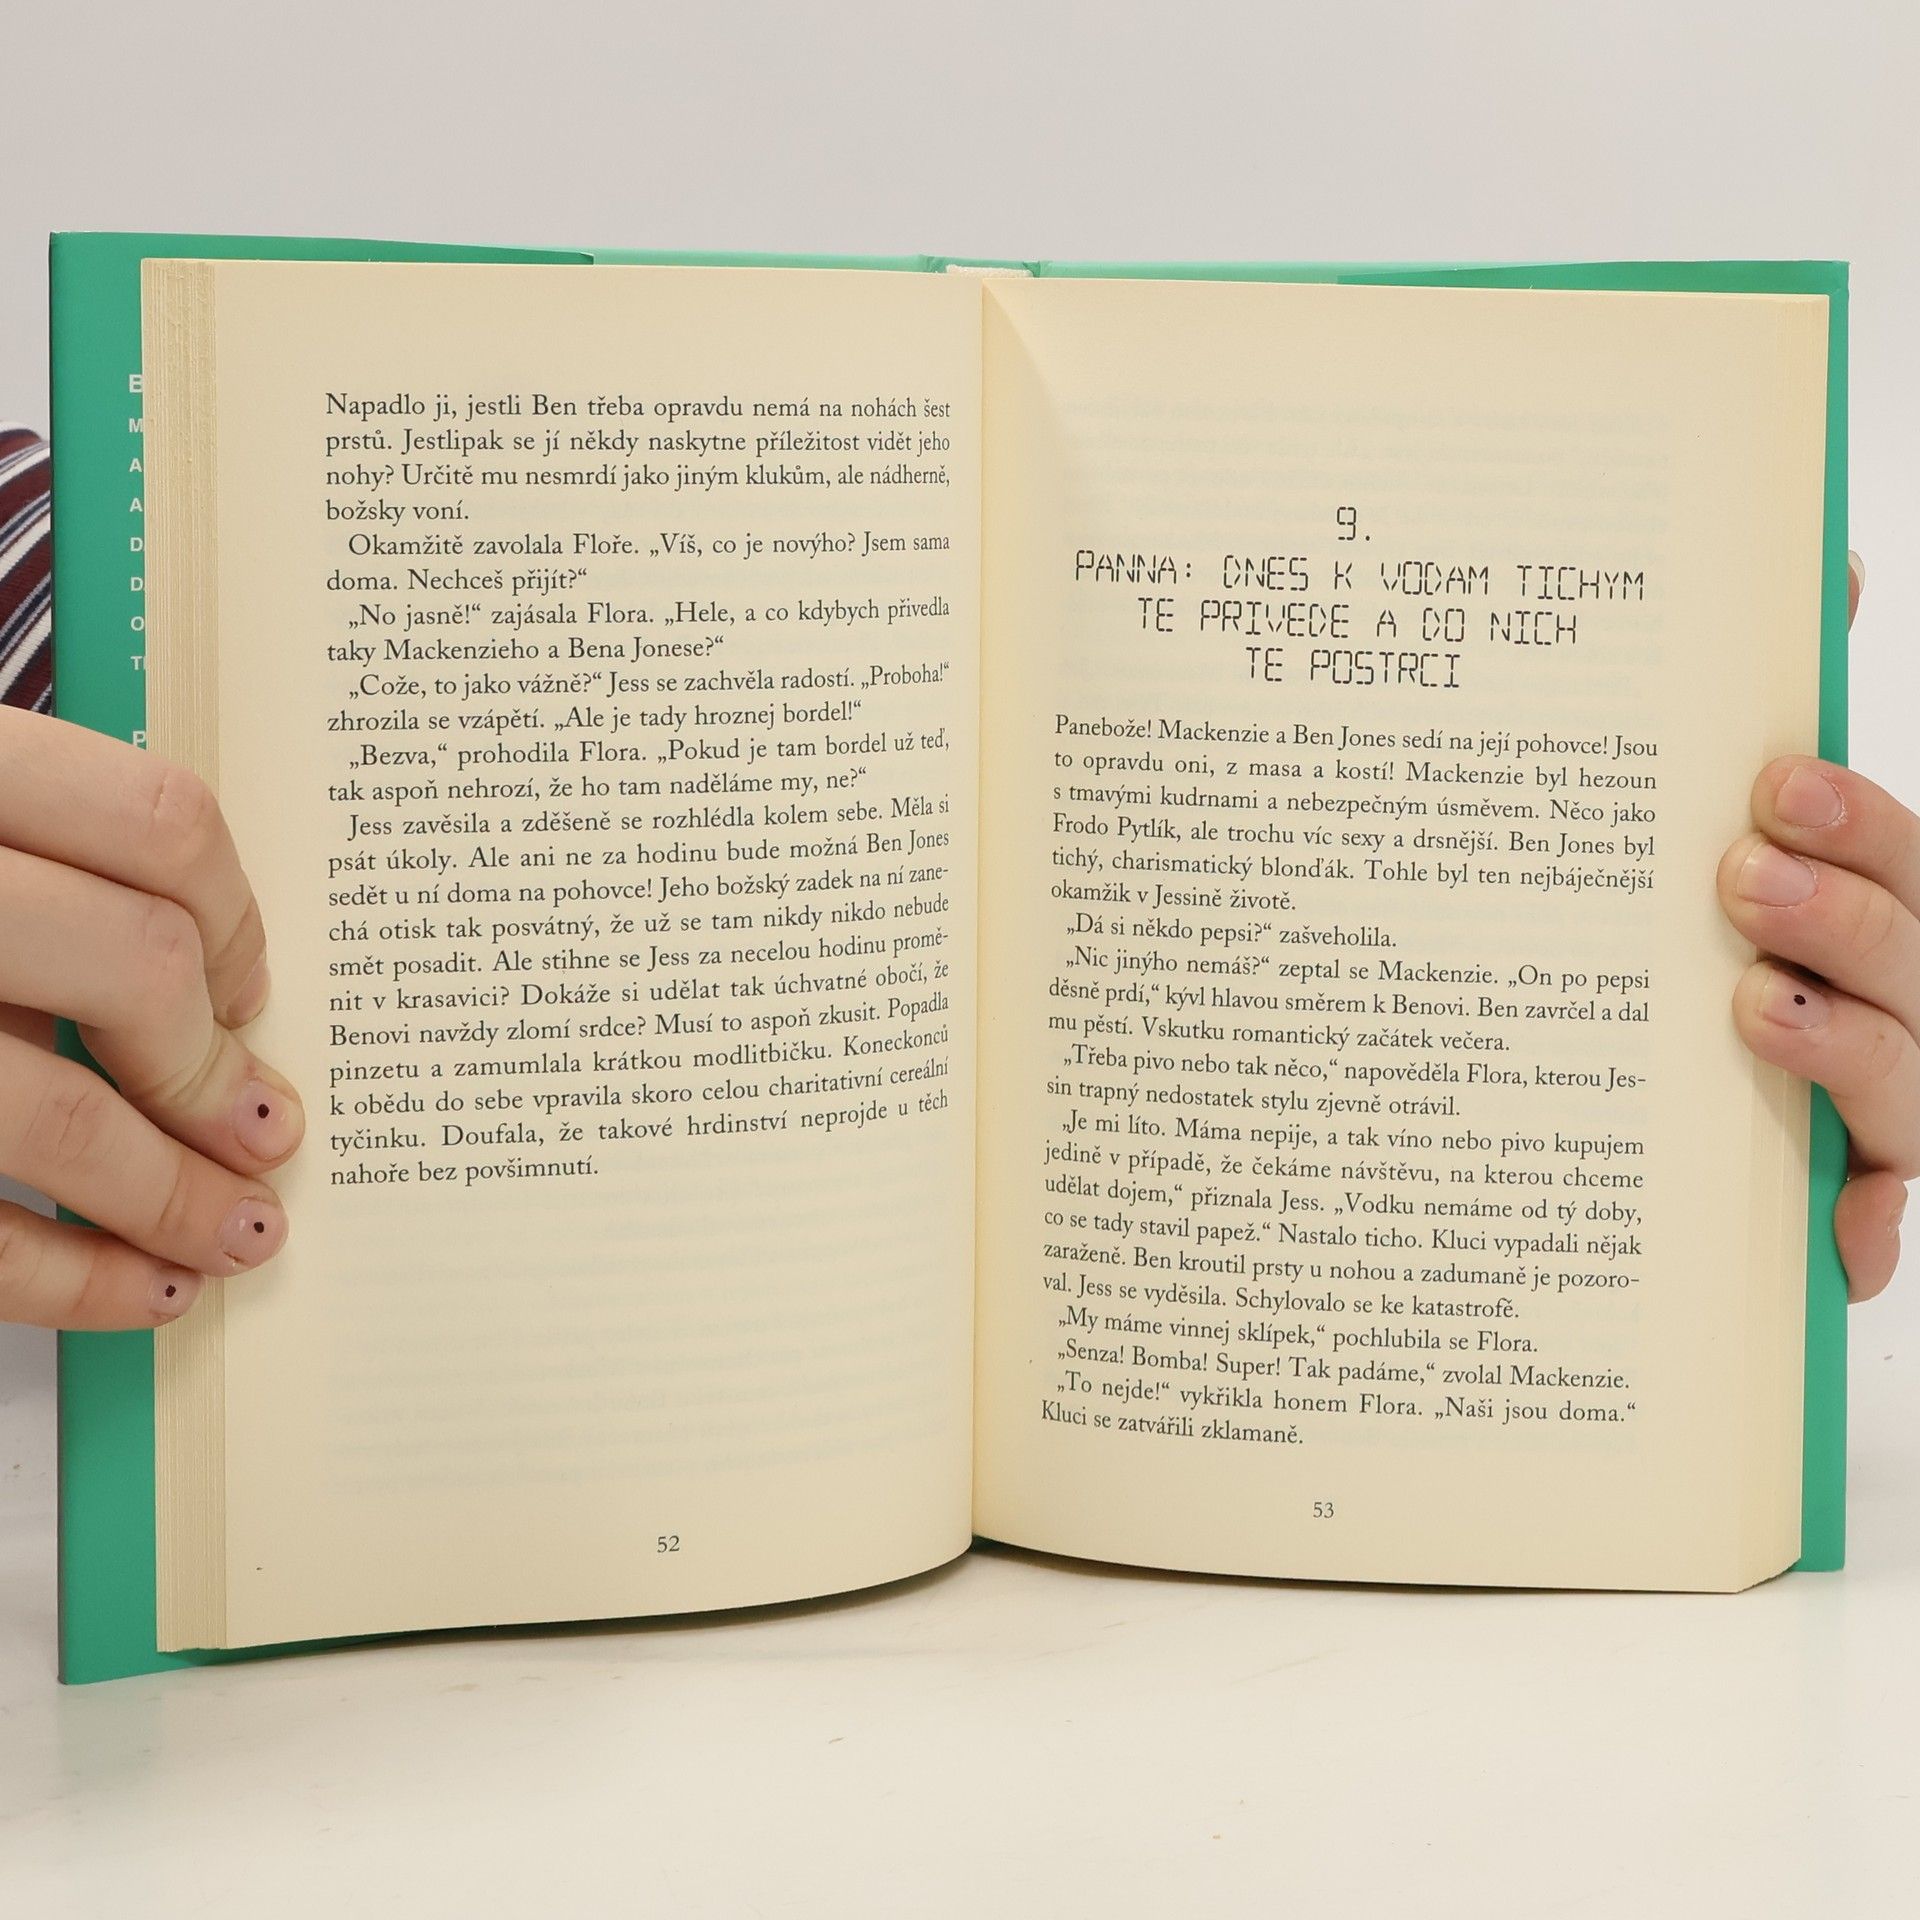 Napadlo ji, jestli Ben třeba opravdu nemá na nohách šest
prstů. Jestlipak se jí někdy naskytne příležitost vidět jeho
nohy? Určitě mu nesmrdí jako jiným klukům, ale nádherně,
božsky voní.
Okamžitě zavolala Floře. „Víš, co je novýho? Jsem sama
doma. Nechceš přijít?“
„No jasně!“ zajásala Flora. „Hele, a co kdybych přivedla
taky Mackenzieho a Bena Jonese?“
„Cože, to jako vážně?“ Jess se zachvěla radostí. „Proboha!“
zhrozila se vzápětí. „Ale je tady hroznej bordel!“
„Bezva,“ prohodila Flora. „Pokud je tam bordel už teď,
tak aspoň nehrozí, že ho tam naděláme my, ne?“
Jess zavěsila a zděšeně se rozhlédla kolem sebe. Měla si
psát úkoly. Ale ani ne za hodinu bude možná Ben Jones
sedět u ní doma na pohovce! Jeho božský zadek na ní zane-
chá otisk tak posvátný, že už se tam nikdy nikdo nebude
smět posadit. Ale stihne se Jess za necelou hodinu promě-
nit v krasavici? Dokáže si udělat tak úchvatné obočí, že
Benovi navždy zlomí srdce? Musí to aspoň zkusit. Popadla
pinzetu a zamumlala krátkou modlitbičku. Koneckonců
k obědu do sebe vpravila skoro celou charitativní cereální
tyčinku. Doufala, že takové hrdinství neprojde u těch
nahoře bez povšimnutí.
52
9.
PANNA: DNES K VODAM TICHYM
TE PRIVEDE A DO NICH
TE POSTRCI
Panebože! Mackenzie a Ben Jones sedí na její pohovce! Jsou
to opravdu oni, z masa a kostí! Mackenzie byl hezoun
s tmavými kudrnami a nebezpečným úsměvem. Něco jako
Frodo Pytlík, ale trochu víc sexy a drsnější. Ben Jones byl
tichý, charismatický blonďák. Tohle byl ten nejbáječnější
okamžik v Jessině životě.
„Dá si někdo pepsi?“ zašveholila.
„Nic jinýho nemáš?“ zeptal se Mackenzie. „On po pepsi
děsně prdí,“ kývl hlavou směrem k Benovi. Ben zavrčel a dal
mu pěstí. Vskutku romantický začátek večera.
„Třeba pivo nebo tak něco,“ napověděla Flora, kterou Jes-
sin trapný nedostatek stylu zjevně otrávil.
„Je mi líto. Máma nepije, a tak víno nebo pivo kupujem
jedině v případě, že čekáme návštěvu, na kterou chceme
udělat dojem,“ přiznala Jess. „Vodku nemáme od tý doby,
co se tady stavil papež.“ Nastalo ticho. Kluci vypadali nějak
zaraženě. Ben kroutil prsty u nohou a zadumaně je pozoro-
val. Jess se vyděsila. Schylovalo se ke katastrofě.
„My máme vinnej sklípek,“ pochlubila se Flora.
„Senza! Bomba! Super! Tak padáme,“ zvolal Mackenzie.
„To nejde!“ vykřikla honem Flora. „Naši jsou doma.“
Kluci se zatvářili zklamaně.
53